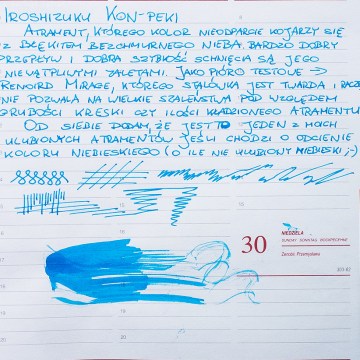 IROSHIZUKU KON-PEKI
ATRAMENT, KTÓREGO KOLOR NIEODPARCIE KOJARZY SIĘ
Z BŁĘKITEM BEZCHMURNEGO NIEBA. BARDZO DOBRY
PRZEPŁYW I DOBRA SZYBKOŚĆ SCHNIĘCIA SĄ JEGO
NIEWĄTPLIWYMI ZALETAMI. JAKO PIÓRO TESTOWE →
RENOIRD MIRAGE, KTÓREGO STALÓWKA JEST TWARDA I RACZEJ
NIE POZWALA NA WIELKIE SZALEŃSTWA POD WZGLĘDEM
GRUBOŚCI KRESKI CZY ILOŚCI KŁADZIONEGO ATRAMENTU
OD SIEBIE DODAM, ŻE JEST TO JEDEN Z MOICH
ULUBIONYCH ATRAMENTÓW JEŚLI CHODZI O ODCIENIE
KOLORU NIEBIESKIEGO (O ILE NIE ULUBIONY NIEBIESKI ;-)
30
NIEDZIELA
SUNDAY SONNTAG ВОСКРЕСЕНЬЕ
Zenobii Przemysława